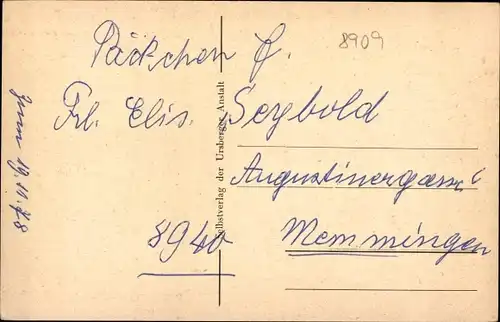 8909
Päckchen f.
Frl. Elis. Seybold
Augustinergasse 6
8940 Memmingen
Zum 19.11.78
Selbstverlag der Ursberger Anstalt